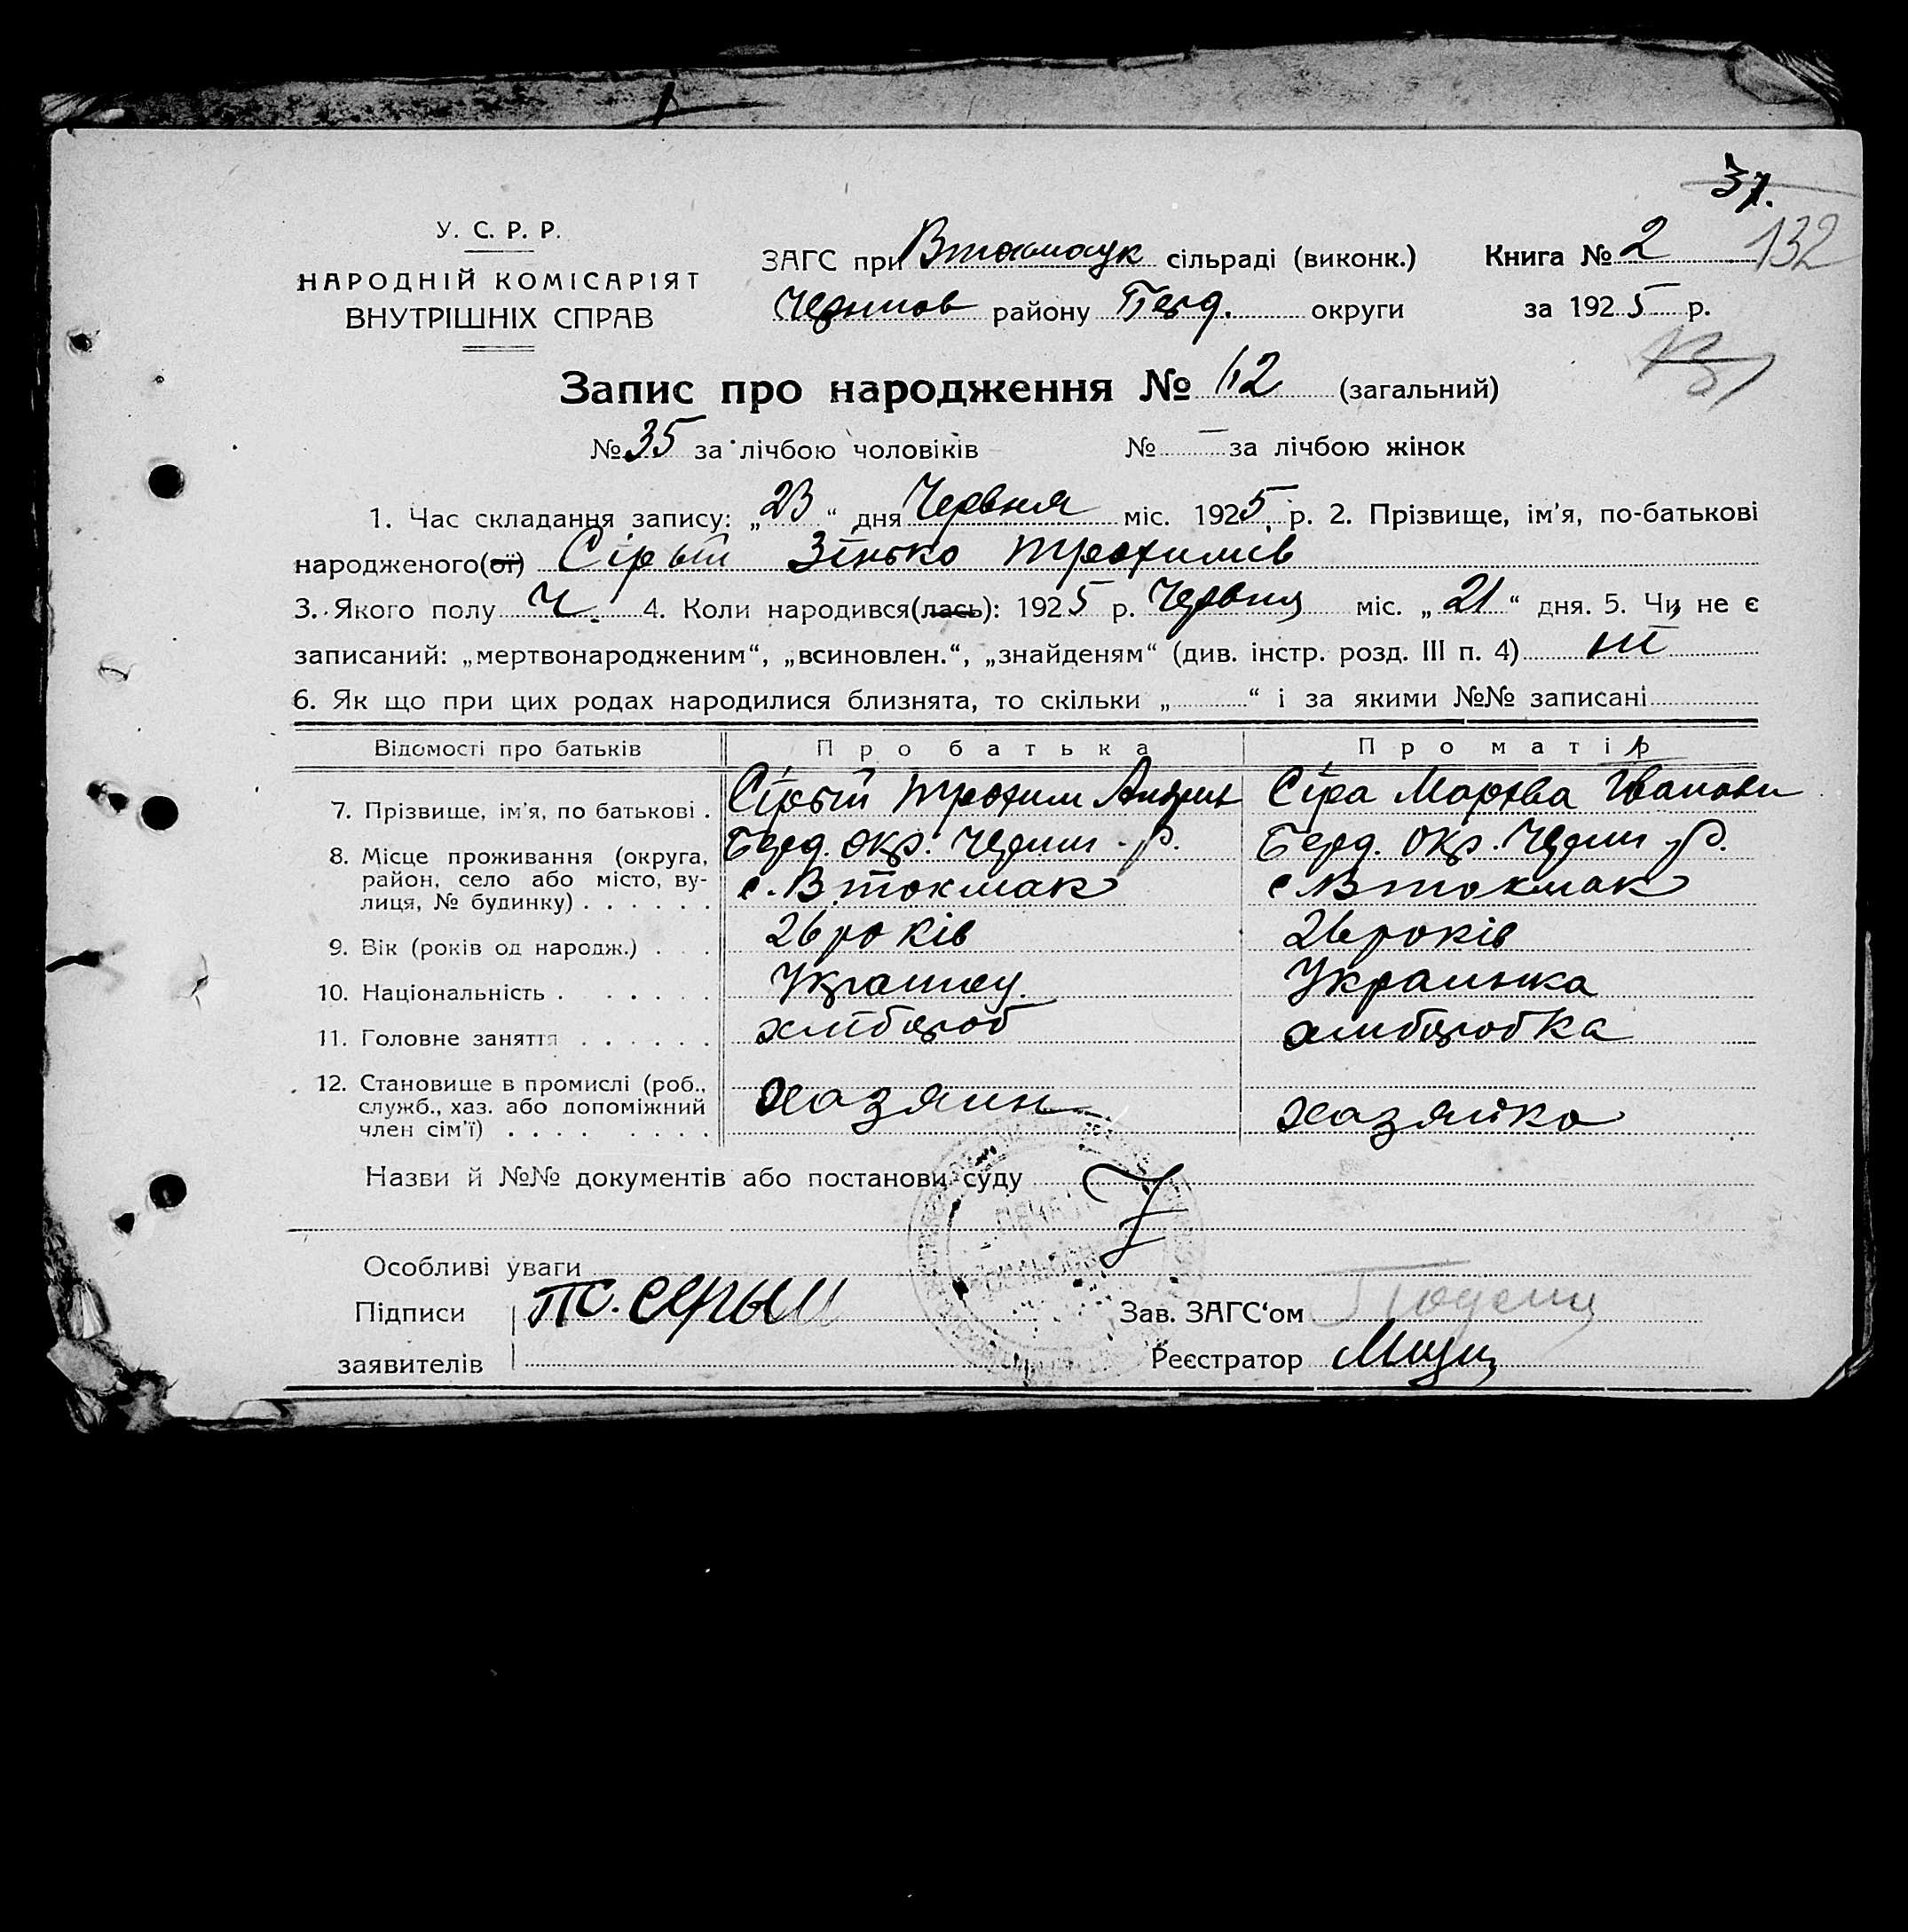 37.
У. С. Р. Р.
НАРОДНІЙ КОМІСАРІЯТ
ВНУТРІШНІХ СПРАВ
ЗАГС при сільраді (виконк.)
району Берд. округи
Книга № 2 132
за 1925 р.
Запис про народження № 112 (загальний)
№ 35 за лічбою чоловіків № — за лічбою жінок
1. Час складання запису: „23“ дня Червня міс. 1925 р. 2. Прізвище, ім'я, по-батькові
народженого(ої) Сірый Зінько Трохимів
3. Якого полу Ч. 4. Коли народився(лась): 1925 р. Червня міс. „21“ дня. 5. Чи не є
записаний: „мертвонародженим“, „всиновлен.“, „знайденям“ (див. інстр. розд. III п. 4) ні
6. Як що при цих родах народилися близнята, то скільки „ “ і за якими №№ записані
Відомості про батьків Про батька Про матір
7. Прізвище, ім'я, по батькові . Сірый Трохим Сіра Марфа
8. Місце проживання (округа, Берд. окр. р. Берд. Окр. р.
район, село або місто, ву- с. В токмак с В токмак
лиця, № будинку) . . . . . .
9. Вік (років од народж.) . . . 26 років 26 років
10. Національність . . . . . . Украинка
11. Головне заняття . . . . . . хлібороб
12. Становище в промислі (роб.,
служб., хаз. або допоміжний хазяин хазяйка
член сім'ї) . . . . . . . .
Назви й №№ документів або постанови суду
Особливі уваги
Підписи Т. серый Зав. ЗАГС'ом
заявителів Реєстратор